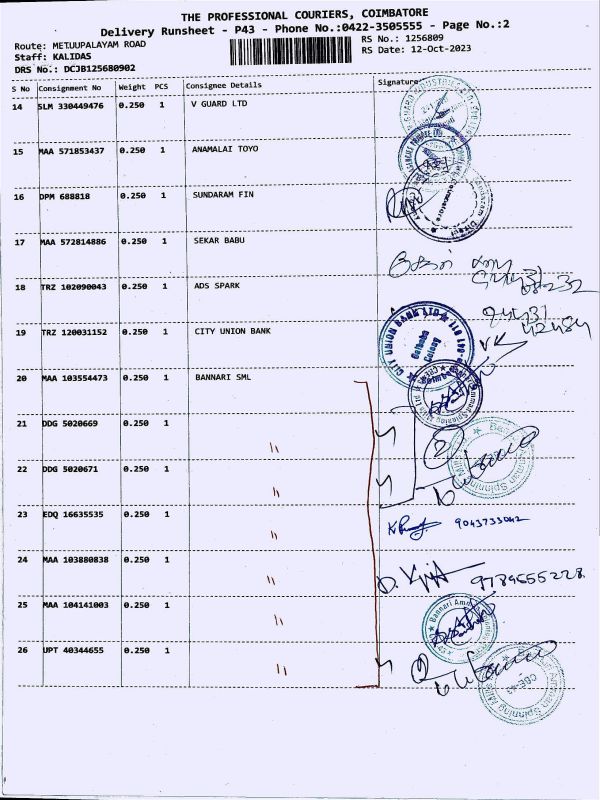 THE PROFESSIONAL COURIERS, COIMBATORE
Delivery Runsheet - P43 - Phone No.:0422-3505555 - Page No.:2
Route: METUUPALAYAM ROAD
Staff: KALIDAS
DRS No.: DCJB125680902
RS No.: 1256809
RS Date: 12-Oct-2023
S No Consignment No Weight PCS Consignee Details Signature
14 SLM 330449476 0.250 1 V GUARD LTD
15 MAA 571853437 0.250 1 ANAMALAI TOYO
16 DPM 688818 0.250 1 SUNDARAM FIN
17 MAA 572814886 0.250 1 SEKAR BABU
18 TRZ 102090043 0.250 1 ADS SPARK
19 TRZ 120031152 0.250 1 CITY UNION BANK
CITY UNION BANK LTD
Colony
20 MAA 103554473 0.250 1 BANNARI SML
21 DDG 5020669 0.250 1 "
22 DDG 5020671 0.250 1 "
23 EDQ 16635535 0.250 1 " 9043733042
24 MAA 103880838 0.250 1 " 9789555228
25 MAA 104141003 0.250 1 "
26 UPT 40344655 0.250 1 "